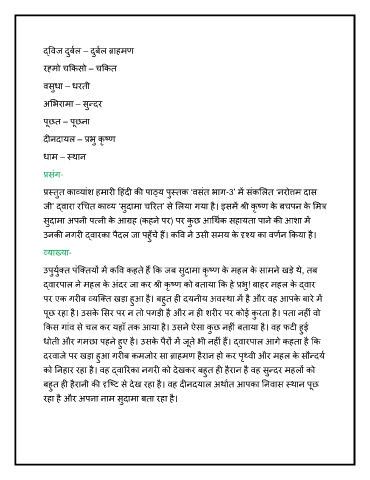 द्विज दुर्बल – दुर्बल ब्राहमण
रह्मो चकिसो – चकित
वसुधा – धरती
अभिरामा – सुन्दर
पूछत – पूछना
दीनदायल – प्रभु कृष्ण
धाम – स्थान
प्रसंग-
प्रस्तुत काव्यांश हमारी हिंदी की पाठ्य पुस्तक 'वसंत भाग-3' में संकलित 'नरोत्तम दास
जी' द्वारा रचित काव्य 'सुदामा चरित' से लिया गया है। इसमें श्री कृष्ण के बचपन के मित्र
सुदामा अपनी पत्नी के आग्रह (कहने पर) पर कुछ आर्थिक सहायता पाने की आशा में
उनकी नगरी द्वारका पैदल जा पहुँचे हैं। कवि ने उसी समय के दृश्य का वर्णन किया है।
व्याख्या-
उपुर्युक्त पंक्तियों में कवि कहते हैं कि जब सुदामा कृष्ण के महल के सामने खड़े थे, तब
द्वारपाल ने महल के अंदर जा कर श्री कृष्ण को बताया कि हे प्रभु! बाहर महल के द्वार
पर एक गरीब व्यक्ति खड़ा हुआ है। बहुत ही दयनीय अवस्था में है और वह आपके बारे में
पूछ रहा है। उसके सिर पर न तो पगड़ी है और न ही शरीर पर कोई कुरता है। पता नहीं वो
किस गांव से चल कर यहाँ तक आया है। उसने ऐसा कुछ नहीं बताया है। वह फटी हुई
धोती और गमछा पहने हुए है। उसके पैरों में जूते भी नहीं हैं। द्वारपाल आगे कहता है कि
दरवाजे पर खड़ा हुआ गरीब कमजोर सा ब्राहमण हैरान हो कर पृथ्वी और महल के सौन्दर्य
को निहार रहा है। वह द्वारिका नगरी को देखकर बहुत ही हैरान है वह सुन्दर महलों को
बहुत ही हैरानी की दृष्टि से देख रहा है। वह दीनदयाल अर्थात आपका निवास स्थान पूछ
रहा है और अपना नाम सुदामा बता रहा है।